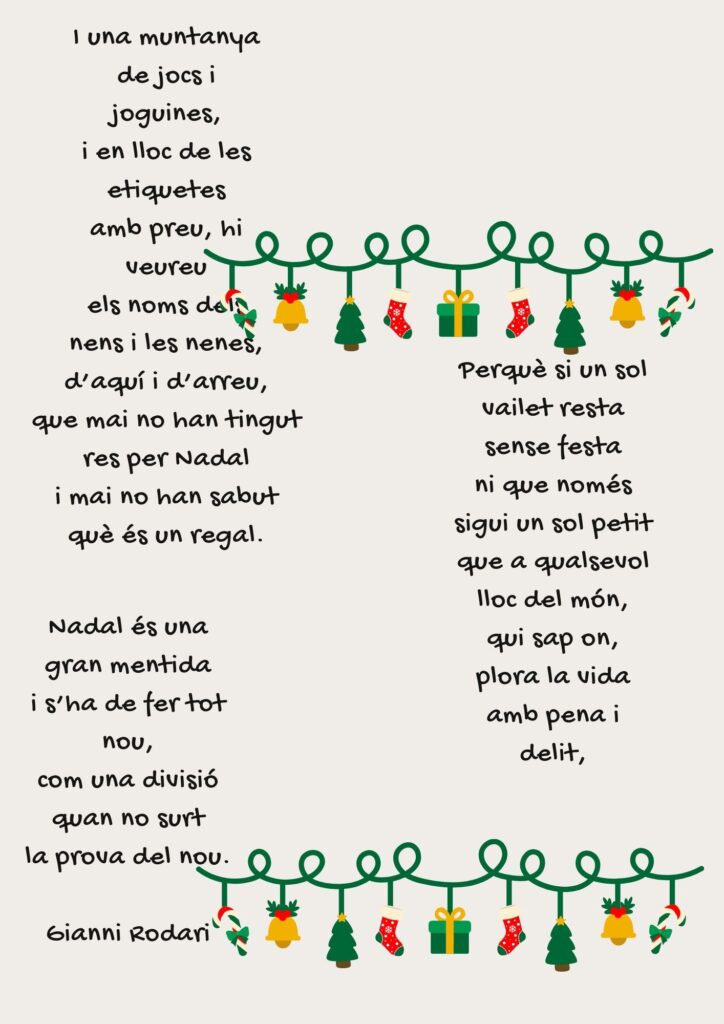 I una muntanya
de jocs i
joguines,
i en lloc de les
etiquetes
amb preu, hi
veureu
els noms dels
nens i les nenes,
d'aquí i d'arreu,
que mai no han tingut
res per Nadal
i mai no han sabut
què és un regal.
Perquè si un sol
vailet resta
sense festa
ni que només
sigui un sol petit
que a qualsevol
lloc del món,
qui sap on,
plora la vida
amb pena i
delit,
Nadal és una
gran mentida
i s'ha de fer tot
nou,
com una divisió
quan no surt
la prova del nou.
Gianni Rodari